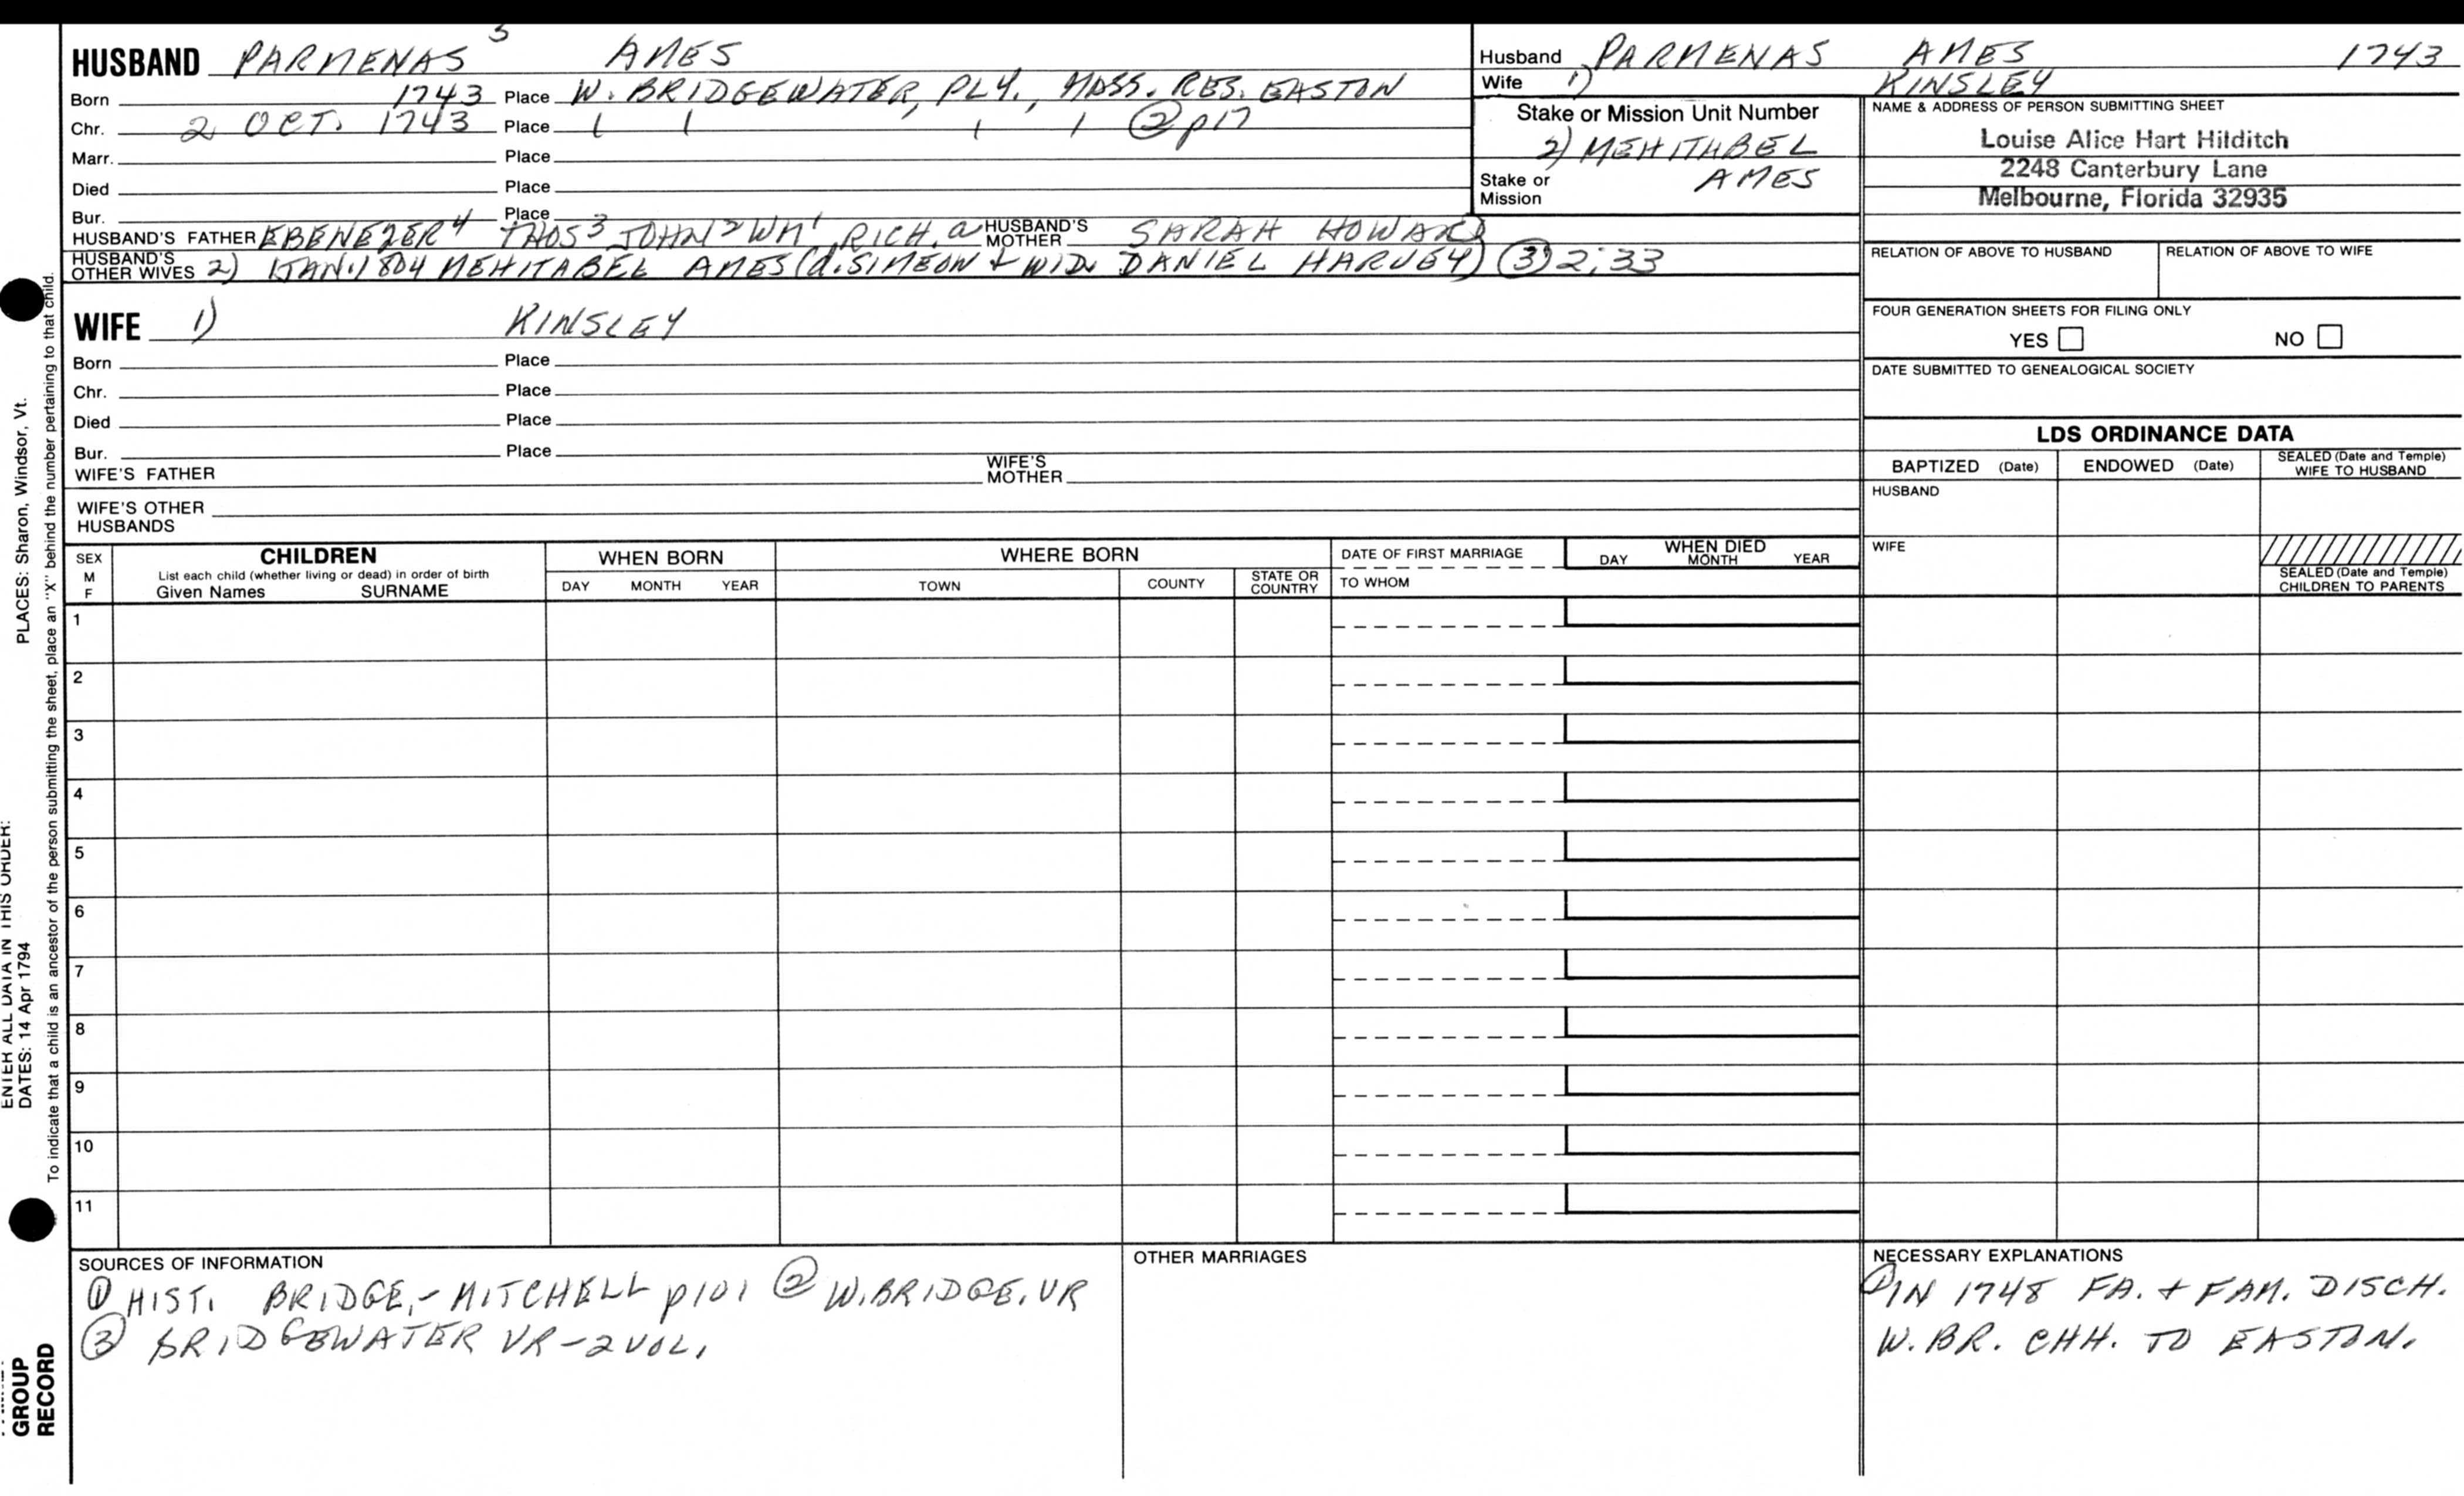 HUSBAND PARMENAS 5 AMES
Born 1743 Place W. BRIDGEWATER, PLY., MASS. RES. EASTON
Chr. 2 OCT. 1743 Place ( ( , ( / ② p17
Marr. Place
Died Place
Bur. Place
HUSBAND'S FATHER EBENEZER4 THOS3 JOHN2 WM1, RICH.a HUSBAND'S MOTHER SARAH HOWARD
HUSBAND'S OTHER WIVES 2) 1 JAN. 1804 MEHITABEL AMES (d. SIMEON & WID. DANIEL HARVEY) ③ 2:33
Husband PARMENAS AMES 1743
Wife 1) KINSLEY
Stake or Mission Unit Number
2) MEHITHBEL
AMES
Stake or
Mission
NAME & ADDRESS OF PERSON SUBMITTING SHEET
Louise Alice Hart Hilditch
2248 Canterbury Lane
Melbourne, Florida 32935
RELATION OF ABOVE TO HUSBAND RELATION OF ABOVE TO WIFE
FOUR GENERATION SHEETS FOR FILING ONLY
YES NO
DATE SUBMITTED TO GENEALOGICAL SOCIETY
WIFE 1) KINSLEY
Born Place
Chr. Place
Died Place
Bur. Place
WIFE'S FATHER WIFE'S MOTHER
WIFE'S OTHER
HUSBANDS
LDS ORDINANCE DATA
BAPTIZED (Date) ENDOWED (Date) SEALED (Date and Temple) WIFE TO HUSBAND
HUSBAND
WIFE
SEALED (Date and Temple)
CHILDREN TO PARENTS
SEX
M
F
CHILDREN
List each child (whether living or dead) in order of birth
Given Names SURNAME
WHEN BORN
DAY MONTH YEAR
WHERE BORN
TOWN COUNTY STATE OR COUNTRY
DATE OF FIRST MARRIAGE
TO WHOM
WHEN DIED
DAY MONTH YEAR
1
2
3
4
5
6
7
8
9
10
11
SOURCES OF INFORMATION
① HIST. BRIDGE,- MITCHELL p101 ② W.BRIDGE. VR
③ BRIDGEWATER VR-2VOL.
OTHER MARRIAGES
NECESSARY EXPLANATIONS
① IN 1748 FA. + FAM. DISCH.
W. BR. CHH. TO EASTON.
PLACES: Sharon, Windsor, Vt.
ENTER ALL DATA IN THIS ORDER:
DATES: 14 Apr 1794
To indicate that a child is an ancestor of the person submitting the sheet, place an "X" behind the number pertaining to that child.
GROUP
RECORD